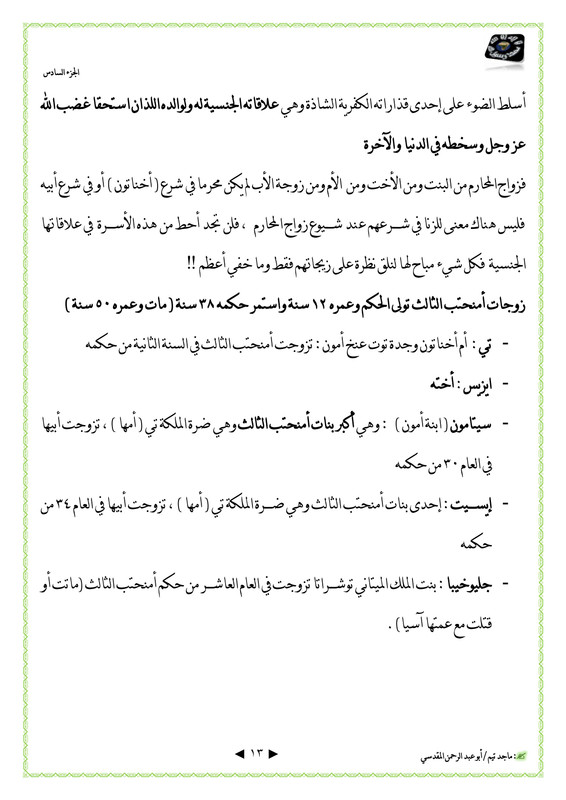 الجزء السادس
أسلط الضوء على إحدى قذاراته الكفرية الشاذة وهي علاقاته الجنسية له ولوالده اللذان استحقا غضب الله
عز وجل وسخطه في الدنيا والآخرة
فزواج المحارم من البنت ومن الأخت ومن الأم ومن زوجة الأب لم يكن محرما في شرع ( أخناتون ) أو في شرع أبيه
فليس هناك معنى للزنا في شرعهم عند شيوع زواج المحارم ، فلن تجد أحط من هذه الأسرة في علاقاتها
الجنسية فكل شيء مباح لها لنلق نظرة على زيجاتهم فقط وما خفي أعظم !!
زوجات أمنحتب الثالث تولى الحكم وعمره ١٢ سنة واستمر حكمه ٣٨ سنة ( مات وعمره ٥٠ سنة )
- تي : أم أخناتون وجدة توت عنخ آمون : تزوجت أمنحتب الثالث في السنة الثانية من حكمه
- ايزيس : أخته
- سيتامون ( ابنة أمون ) : وهي أكبر بنات أمنحتب الثالث وهي ضرة الملكة تي ( أمها ) ، تزوجت أبيها
في العام ٣٠ من حكمه
- إيسيت : إحدى بنات أمنحتب الثالث وهي ضرة الملكة تي ( أمها ) ، تزوجت أبيها في العام ٣٤ من
حكمه
- جليوخيبا : بنت الملك الميتاني توشراتا تزوجت في العام العاشر من حكم أمنحتب الثالث (ماتت أو
قتلت مع عمتها آسيا ) .
١٣
: ماجد تيم / أبو عبد الرحمن المقدسي